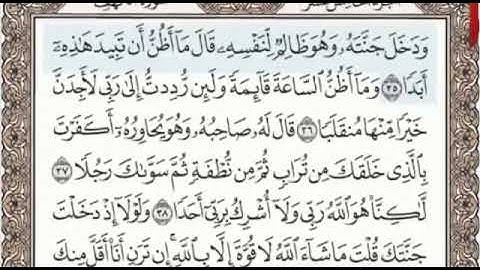 وَدَخَلَ جَنَّتَهُۥ وَهُوَ ظَالِمٌ لِّنَفْسِهِۦ قَالَ مَآ أَظُنُّ أَن تَبِيدَ هَٰذِهِۦٓ
أَبَدًا ٣٥ وَمَآ أَظُنُّ ٱلسَّاعَةَ قَآئِمَةً وَلَئِن رُّدِدتُّ إِلَىٰ رَبِّى لَأَجِدَنَّ
خَيْرًا مِّنْهَا مُنقَلَبًا ٣٦ قَالَ لَهُۥ صَاحِبُهُۥ وَهُوَ يُحَاوِرُهُۥٓ أَكَفَرْتَ
بِٱلَّذِى خَلَقَكَ مِن تُرَابٍ ثُمَّ مِن نُّطْفَةٍ ثُمَّ سَوَّىٰكَ رَجُلًا ٣٧
لَّٰكِنَّا۠ هُوَ ٱللَّهُ رَبِّى وَلَآ أُشْرِكُ بِرَبِّىٓ أَحَدًا ٣٨ وَلَوْلَآ إِذْ دَخَلْتَ
جَنَّتَكَ قُلْتَ مَا شَآءَ ٱللَّهُ لَا قُوَّةَ إِلَّا بِٱللَّهِ إِن تَرَنِ أَنَا۠ أَقَلَّ مِنكَ